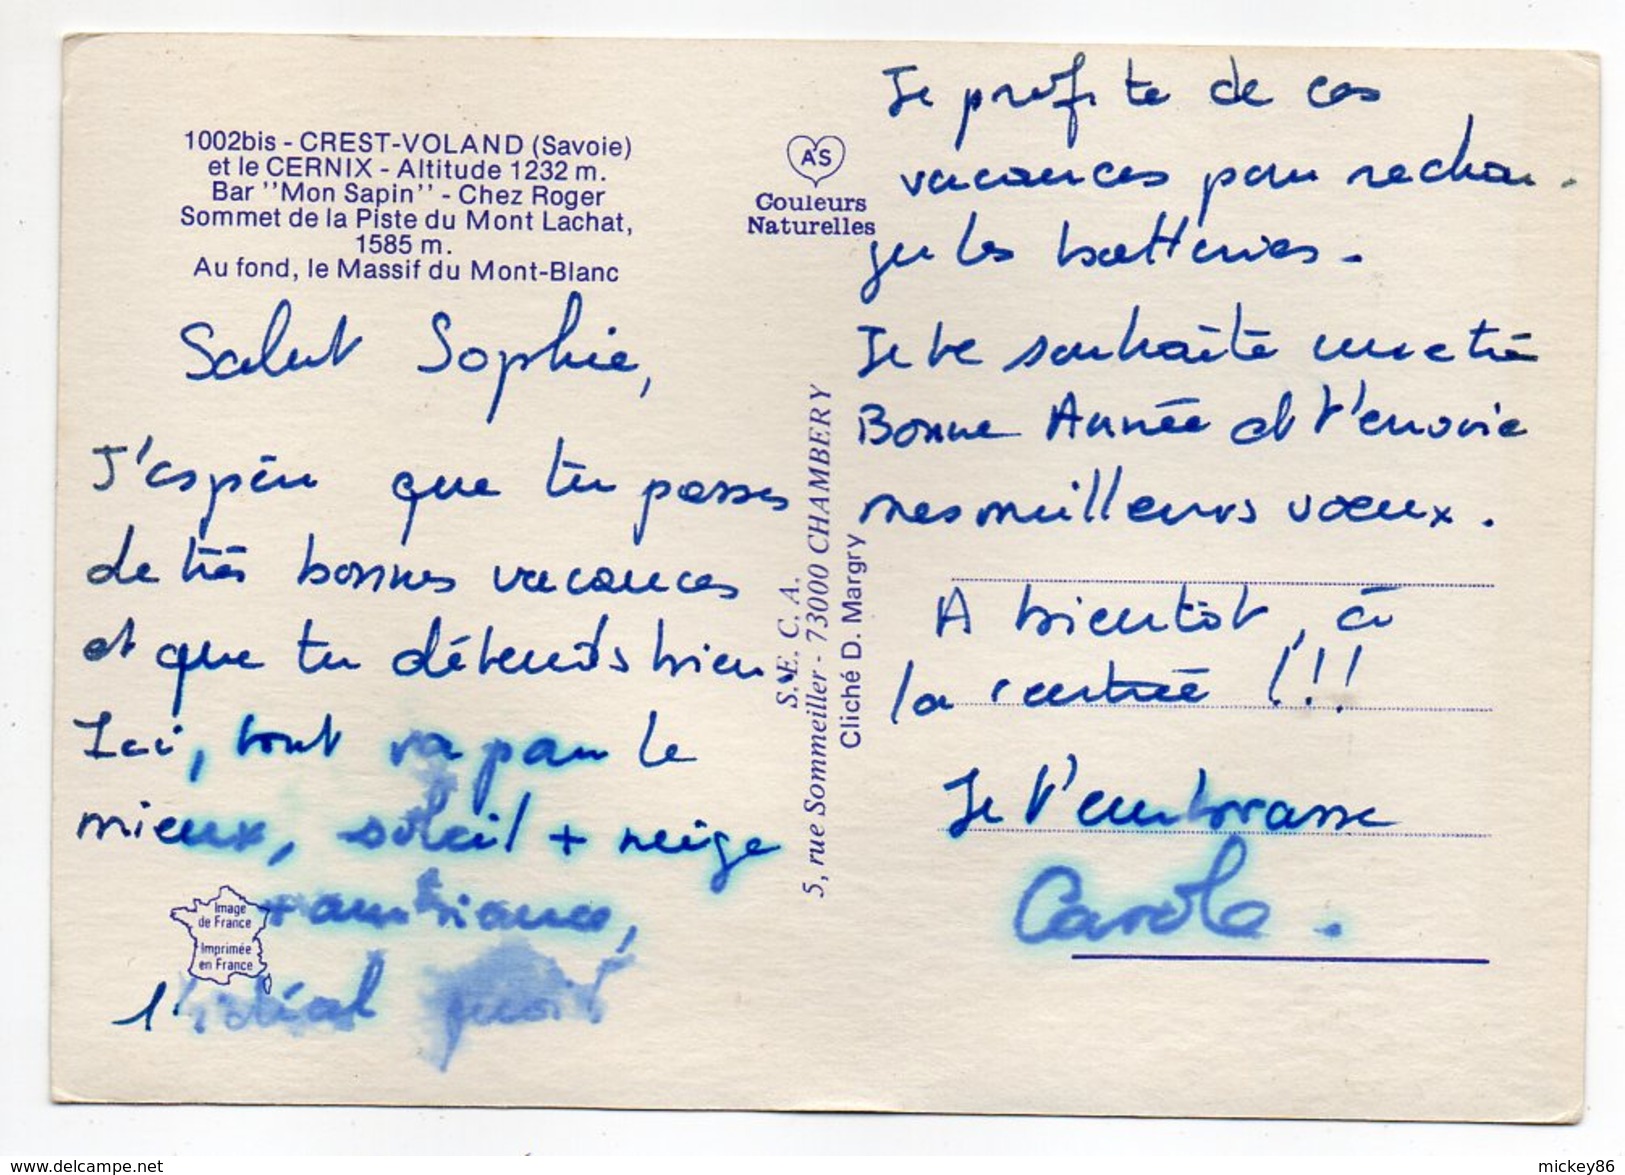 1002bis - CREST-VOLAND (Savoie)
et le CERNIX - Altitude 1232 m.
Bar ''Mon Sapin'' - Chez Roger
Sommet de la Piste du Mont Lachat,
1585 m.
Au fond, le Massif du Mont-Blanc
Salut Sophie,
J'espère que tu passes
de très bonnes vacances
et que tu détends bien.
Ici, tout va pour le
mieux, soleil + neige
+ ambiance,
l'idéal quoi!
Image
de France
Imprimée
en France
AS
Couleurs
Naturelles
S. E. C. A.
5, rue Sommeiller - 73000 CHAMBERY
Cliché D. Margry
Je profite de ces
vacances pour rechar-
ger les batteries.
Je te souhaite une très
Bonne Année et t'envoie
mes meilleurs vœux.
A bientôt, à
la rentrée !!!
Je t'embrasse
Carole.
mickey86
www.delcampe.net